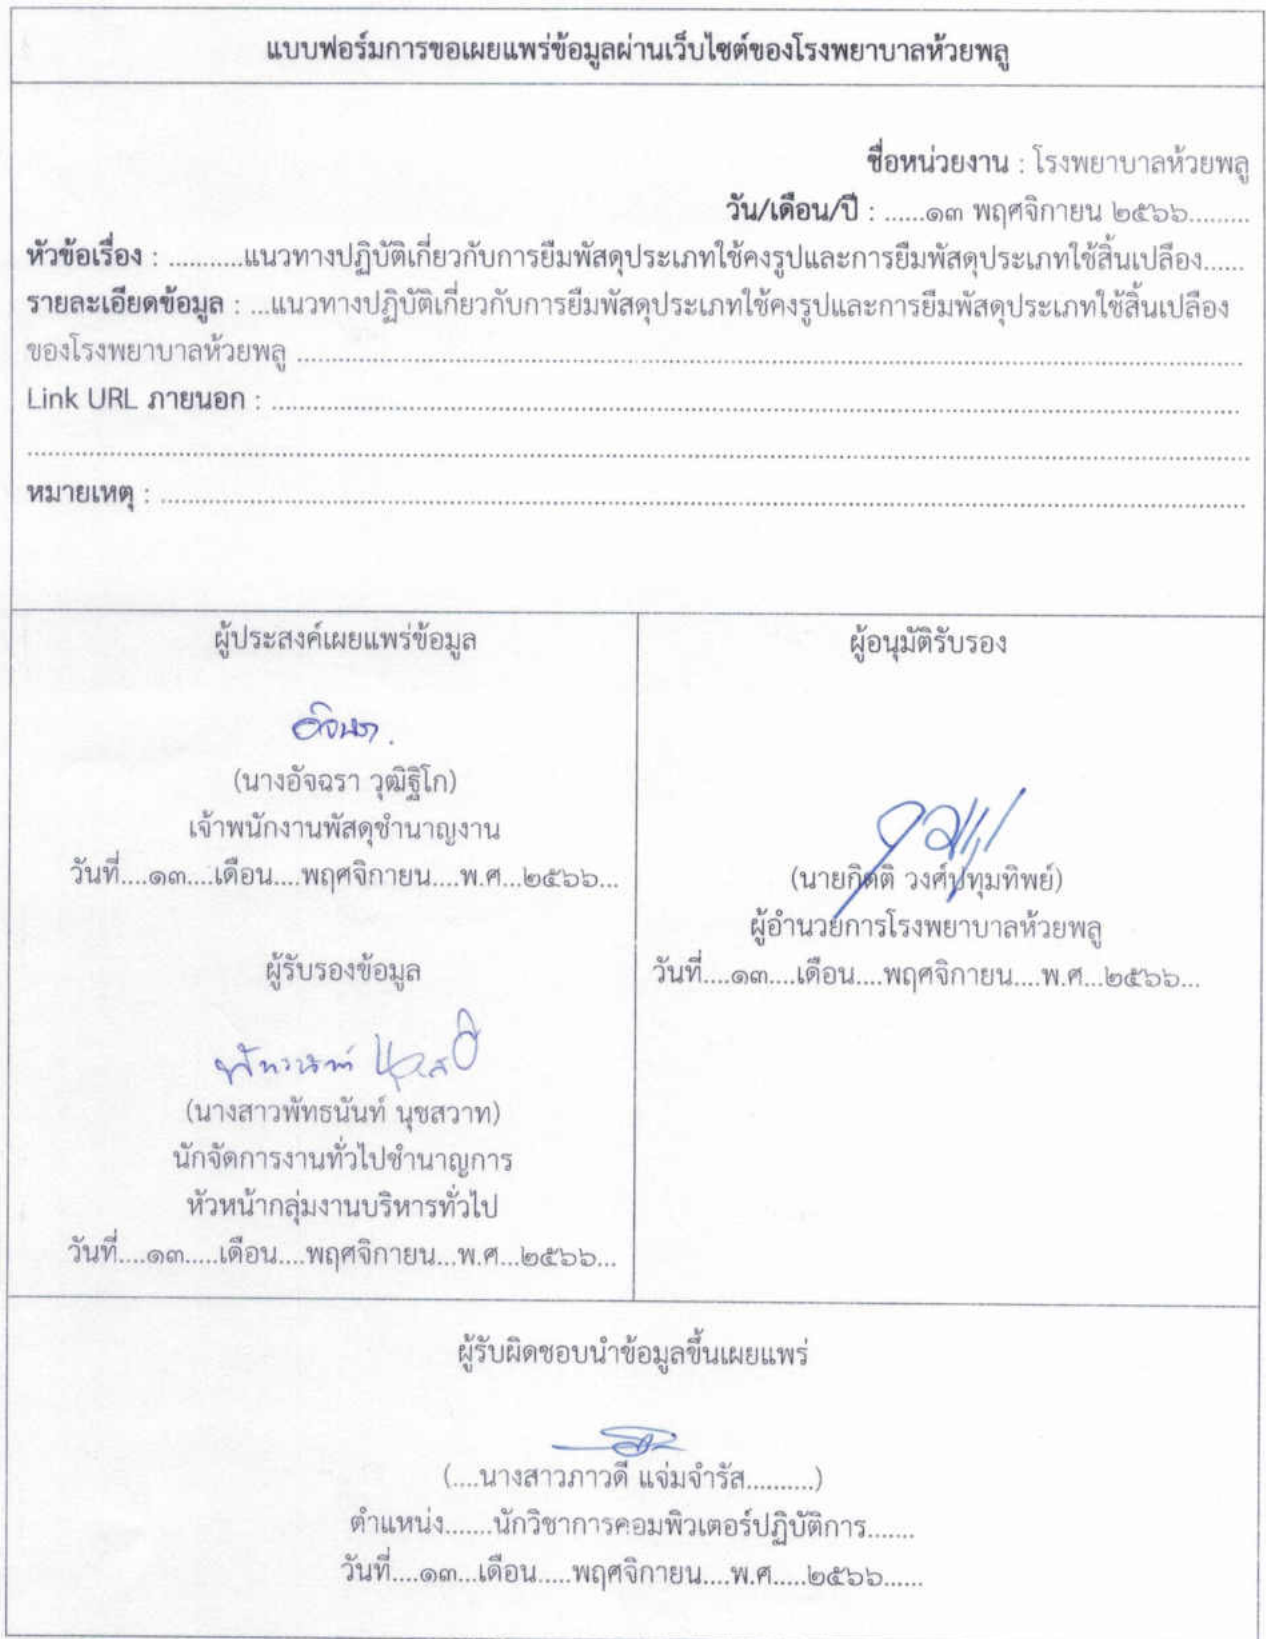 แบบฟอร์มการขอเผยแพร่ข้อมูลผ่านเว็บไซต์ของโรงพยาบาลห้วยพลู
ชื่อหน่วยงาน : โรงพยาบาลห้วยพลู
วัน/เดือน/ปี : ......๑๓ พฤศจิกายน ๒๕๖๖.........
หัวข้อเรื่อง : ...........แนวทางปฏิบัติเกี่ยวกับการยืมพัสดุประเภทใช้คงรูปและการยืมพัสดุประเภทใช้สิ้นเปลือง......
รายละเอียดข้อมูล : ...แนวทางปฏิบัติเกี่ยวกับการยืมพัสดุประเภทใช้คงรูปและการยืมพัสดุประเภทใช้สิ้นเปลือง
ของโรงพยาบาลห้วยพลู
Link URL ภายนอก :
หมายเหตุ :
ผู้ประสงค์เผยแพร่ข้อมูล
อัจฉรา
(นางอัจฉรา วุฒิฐิโก)
เจ้าพนักงานพัสดุชำนาญงาน
วันที่....๑๓....เดือน....พฤศจิกายน....พ.ศ...๒๕๖๖...
ผู้รับรองข้อมูล
(นางสาวพัทธนันท์ นุชสวาท)
นักจัดการงานทั่วไปชำนาญการ
หัวหน้ากลุ่มงานบริหารทั่วไป
วันที่....๑๓.....เดือน....พฤศจิกายน...พ.ศ...๒๕๖๖...
ผู้อนุมัติรับรอง
(นายกิตติ วงศ์ปทุมทิพย์)
ผู้อำนวยการโรงพยาบาลห้วยพลู
วันที่....๑๓....เดือน....พฤศจิกายน....พ.ศ...๒๕๖๖...
ผู้รับผิดชอบนำข้อมูลขึ้นเผยแพร่
(....นางสาวภาวดี แจ่มจำรัส..........)
ตำแหน่ง.......นักวิชาการคอมพิวเตอร์ปฏิบัติการ.......
วันที่....๑๓...เดือน.....พฤศจิกายน....พ.ศ.....๒๕๖๖......